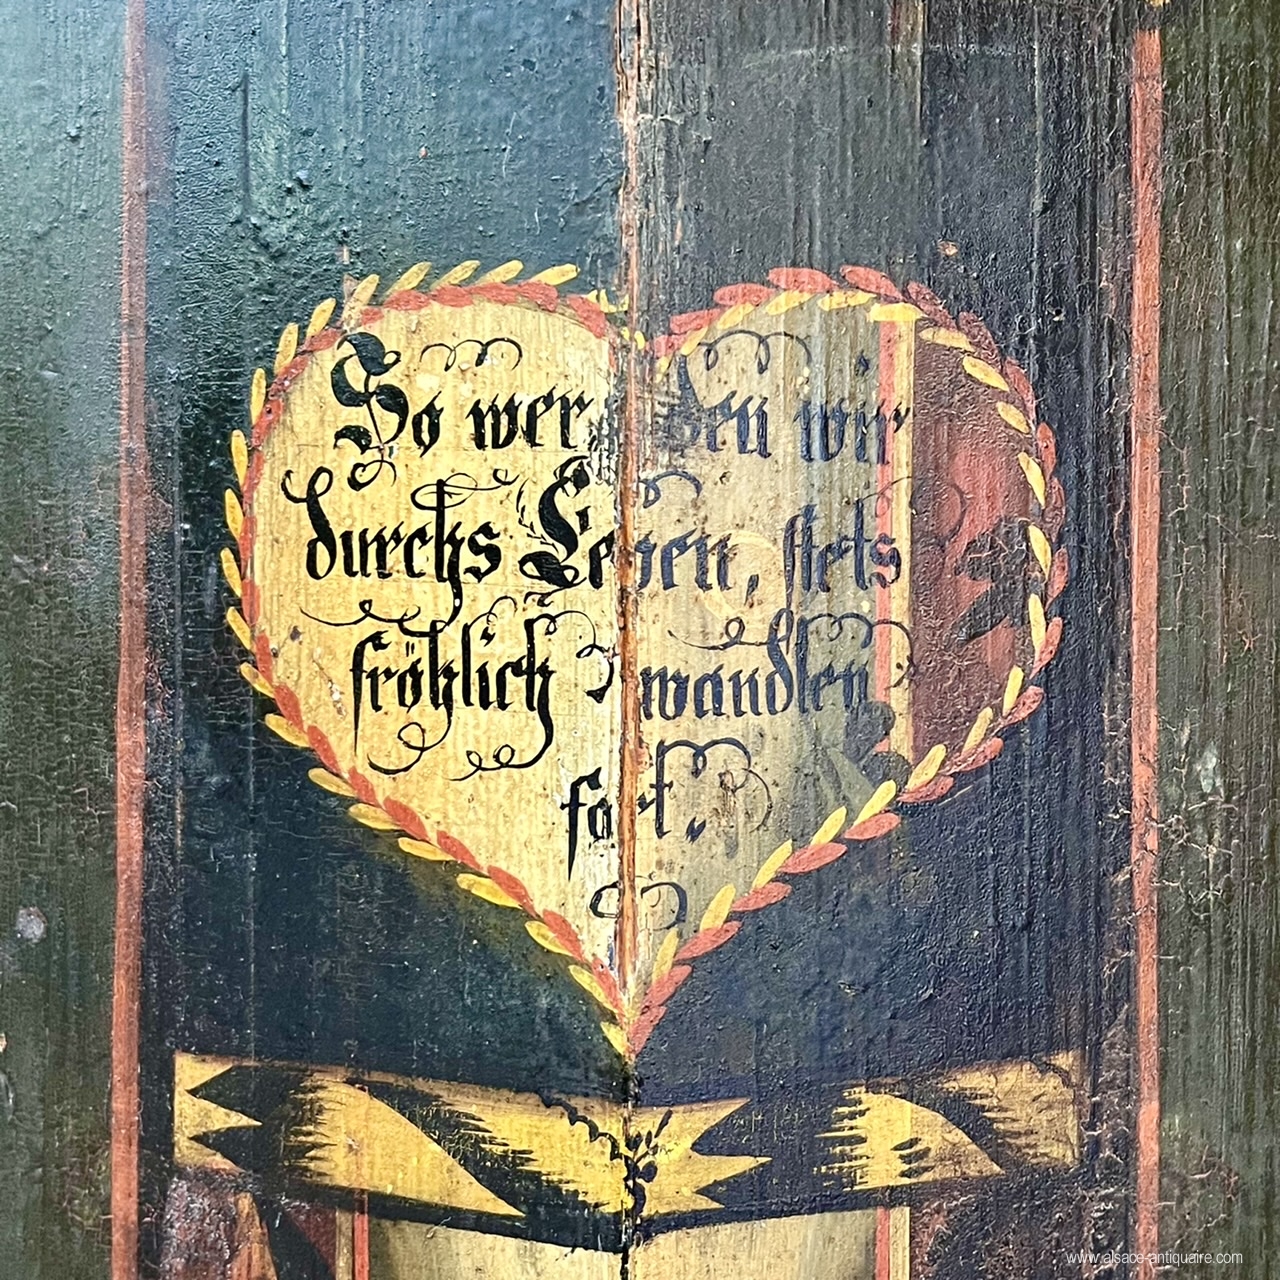 So werden wir
durchs Leben, stets
fröhlich wandlen
fort.
www.alsace-antiquaire.com